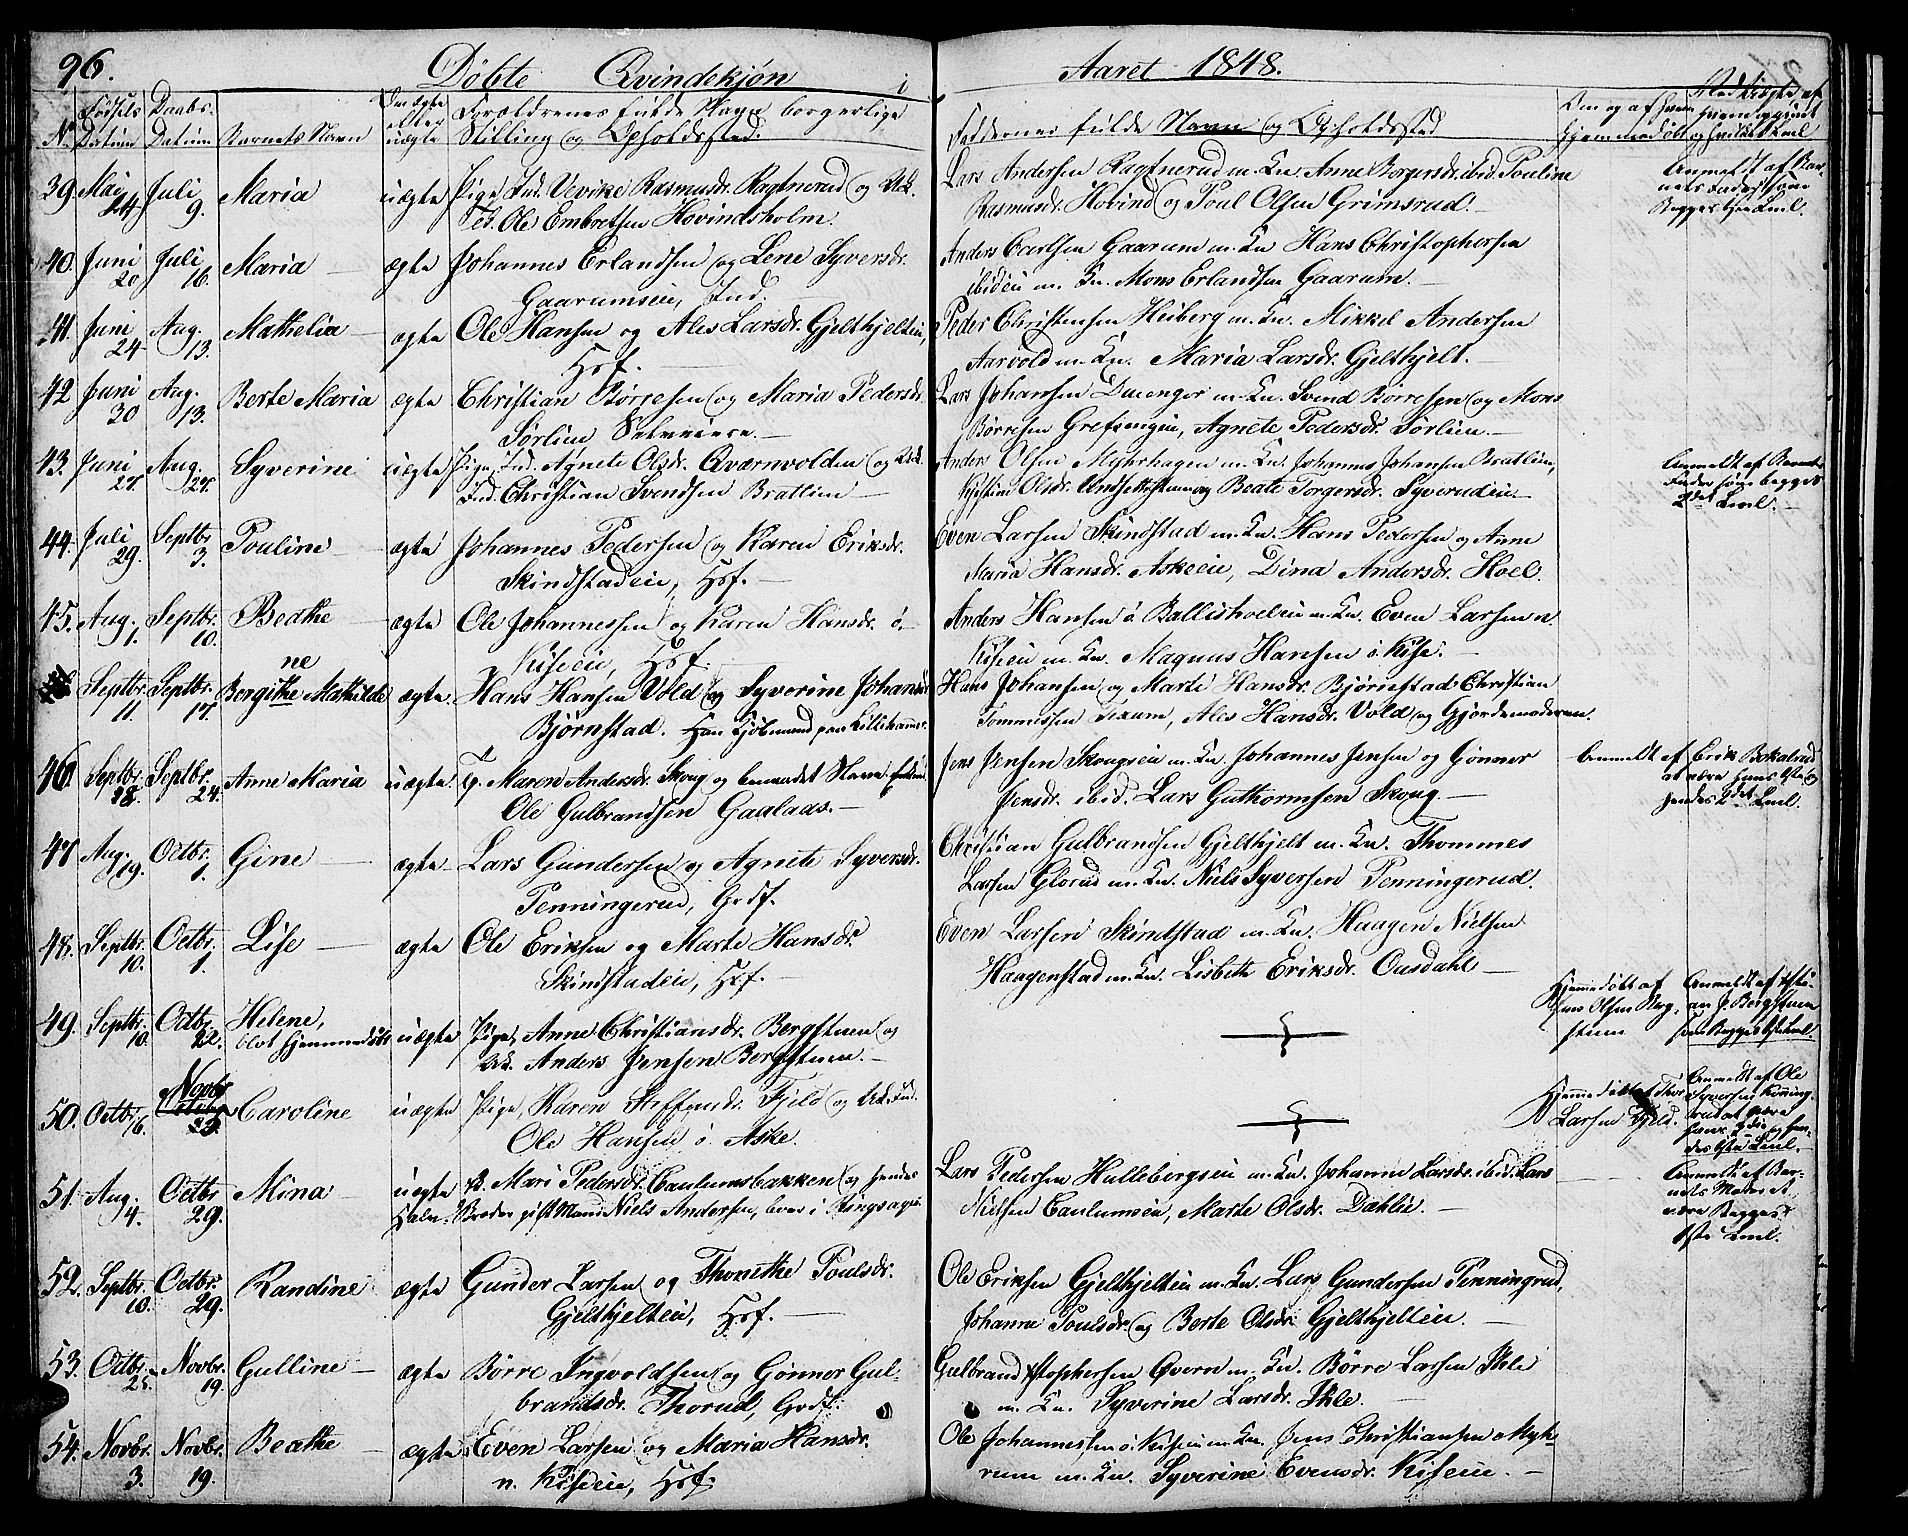 96.
Døbte Qvindekjøn i
Aaret 1848.
No Fødsels Datum
Daabs- Datum
Barnets Navn
Om ægte eller uægte
Forældrenes fulde Navn borgerlige
Stilling og Opholdssted.
Faddernes fulde Navn og Opholdssted
Om og af hvem
hjemmedøbt
39. Mai 24. Juli 9. Maria uægte Pige Ind. Vevike Rasmusdr. Ragnerud og Uk.
Ole Embretsen Hovindsholm.
Lars Andersen Ragnerud m. Kn. Anne Borgersdr. ibid. Pouline
Rasmusdr. Hovind og Poul Olsen Grimsrud.
Anmeldt af Bar-
nets Fader som
Begges 1ste Leml.
40. Juni 20 Juli 16. Maria ægte Johannes Erlandsen og Lene Syversdr.
Gaarumseie, Ind.
Anders Carlsen Gaarum m. Kn. Hans Christophersen
ibideie m. Kn. Mons Erlandsen Gaarum.
41. Juni 24. Aug. 13. Mathelia ægte Ole Hansen og Ales Larsdr. Gjelthjelteie,
Hsf.
Peder Christensen Heiberg m. Kn. Mikkel Andersen
Aarvold m. Kn. Maria Larsdr. Gjelthjelt.
42 Juni 30 Aug. 13. Berte Maria ægte Christian Børresen og Maria Pedersdr.
Sørlien Selveiere.
Lars Johansen Duenger m. Kn. Svend Børresen og Mons
Børresen Grefsengen, Agnete Pedersdr. Sørlien.
43. Juni 27. Aug. 27. Syverine uægte Pige, Ind. Agnete Olsdr. Qværnvolden og Uk.
Ind. Christian Svendsen Bratlien
Anders Olsen Myhrhagen m. Kn. Johannes Johansen Bratlien,
Olsdr. og Beate Torgersdr. Syverudeie.
Anmeldt af Barnets
Fader som begges
2det Leml.
44. Juli 29. Septbr. 3. Pouline ægte Johannes Pedersen og Karen Eriksdr.
Skindstadeie, Hsf.
Even Larsen Skindstad m. Kn. Hans Pedersen og Anne
Maria Hansdr. Askeeie, Dina Andersdr. Hoel.
45. Aug. 1. Septbr. 10. Beathe ægte Ole Johannessen og Karen Hansdr. ö.
Kiseeie, Hsf.
Anders Hansen ö. Ballishoeleie m. Kn. Even Larsen n.
Kiseeie m. Kn. Magnus Hansen ö. Kise.
Septbr. 11. Septbr. 17. Bergithe Mathilde ne ægte Hans Hansen Vold og Syverine Johansdr.
Bjørnstad. Han Kjøbmand paa Lillehammer.
Hans Johansen og Marte Hansdr. Bjørnstad Christian
Tommessen Fexum, Ales Hansdr. Vold og Gjordemoderen.
46. Septbr. 18. Septbr. 24. Anne Maria uægte P. Maren Andersdr. Skoug og
Ole Gulbrandsen Gaalaas.
Jens Jensen Skougseie m. Kn. Johannes Jensen og Gønner
Jensdr. ibid. Lars Guthormsen Skoug.
Anmeldt af Erik Bekalrud
at være hans 1ste og
hendes 2det Leml.
47. Aug. 19. Octbr. 1. Gine ægte Lars Gundersen og Agnete Syversdr.
Penningerud, Grdf.
Christian Gulbrandsen Gjelthjelt m. Kn. Thommes
Larsen Glorud m. Kn. Niels Syversen Penningerud.
48. Septbr. 10. Octbr. 1. Lise ægte Ole Eriksen og Marte Hansdr.
Skindstadeie, Hsf.
Even Larsen Skindstad m. Kn. Haagen Nielsen
Haagenstad m. Kn. Lisbeth Eriksdr. Ousdahl
49. Septbr. 10. Octbr. 22. Helene,
blot hjemmedøbt uægte Pige, Anne Christiansdr. Bergstuen og
Uk. Anders Jensen Bergstuen.
Hjemmedøbt af
Jens Olsen Berg-
stuen
50. Octbr. 16. Novbr. Caroline uægte Pige, Karen Steffensdr. Fjeld og Uk. Ind.
Ole Hansen ö. Aske.
Larsen Fjeld.
Anmeldt af Ole
51. Aug. 4. Octbr. 29. Mina uægte P. Mari Pedersdr. Caulumsbakken og hendes
Niels Andersen, boer i Ringsager.
Lars Pedersen Hullebergseie m. Kn. Johanne Larsdr. ibid. Lars
Nielsen Caulumseie, Marte Olsdr. Dahlie.
Anmeldt af Bar-
nets Moder at
være Begges
1ste Leml.
52. Septbr. 10. Octbr. 29. Randine ægte Gunder Larsen og Thonethe Poulsdr.
Gjelthjelteie, Hsf.
Ole Eriksen Gjelthjelteie m. Kn. Lars Gundersen Penningrud,
Johanne Poulsdr. og Berte Olsdr. Gjelthjelteie.
53. Octbr. 25. Novbr. 19. Gulline ægte Børre Ingvoldsen og Gønner Gul-
brandsdr. Thorud, Grdf.
Gulbrand Xstophersen Qvern m. Kn. Børre Larsen Ihle
m. Kn. Syverine Larsdr. Ihle.
54. Novbr. 3. Novbr. 19. Beathe ægte Even Larsen og Maria Hansdr.
n. Kiseeie, Hsf.
Ole Johannessen ö. Kiseeie m. Kn. Jens Christiansen Myh-
rum m. Kn. Syverine Evensdr. Kiseeie.